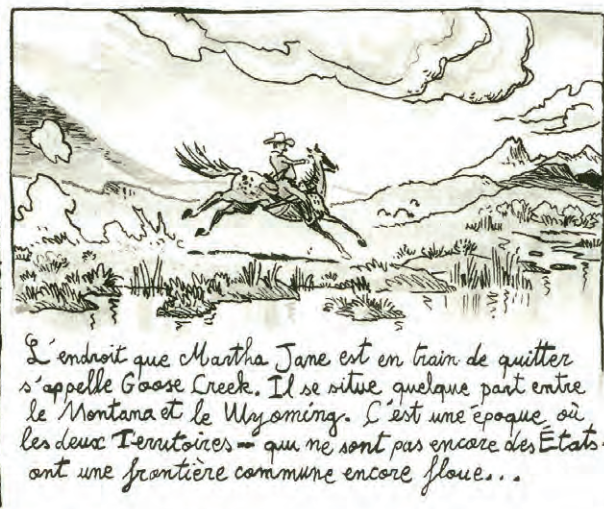 L'endroit que Martha Jane est en train de quitter
s'appelle Goose Creek. Il se situe quelque part entre
le Montana et le Wyoming. C'est une époque où
les deux Territoires - qui ne sont pas encore des États -
ont une frontière commune encore floue...